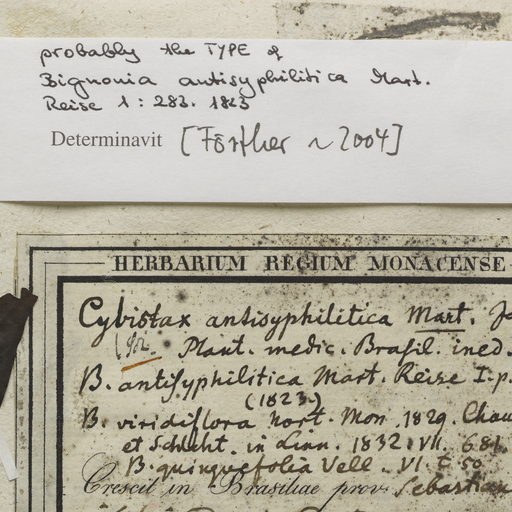 probably the TYPE of
Bignonia antisyphilitica Mart.
Reise 1: 283. 1823
Determinavit [Förther ~ 2004]
HERBARIUM REGIUM MONACENSE
Cybistax antisyphilitica Mart.
Plant. medic. Brasil. ined.
B. antisyphilitica Mart. Reise I. p.
(1823)
B. viridiflora hort. Mon. 1829. Cham
et Schlcht. in Linn. 1832. VII. 681.
B. quinquefolia Vell. VI. t. 50
Crescit in Brasiliae prov. Sebastian